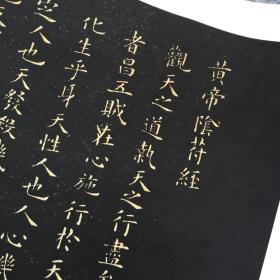 黄帝陰符經
觀天之道執天之行盡
者昌五賊在心施行於天
化生乎身天性人也人心機
人也天發殺